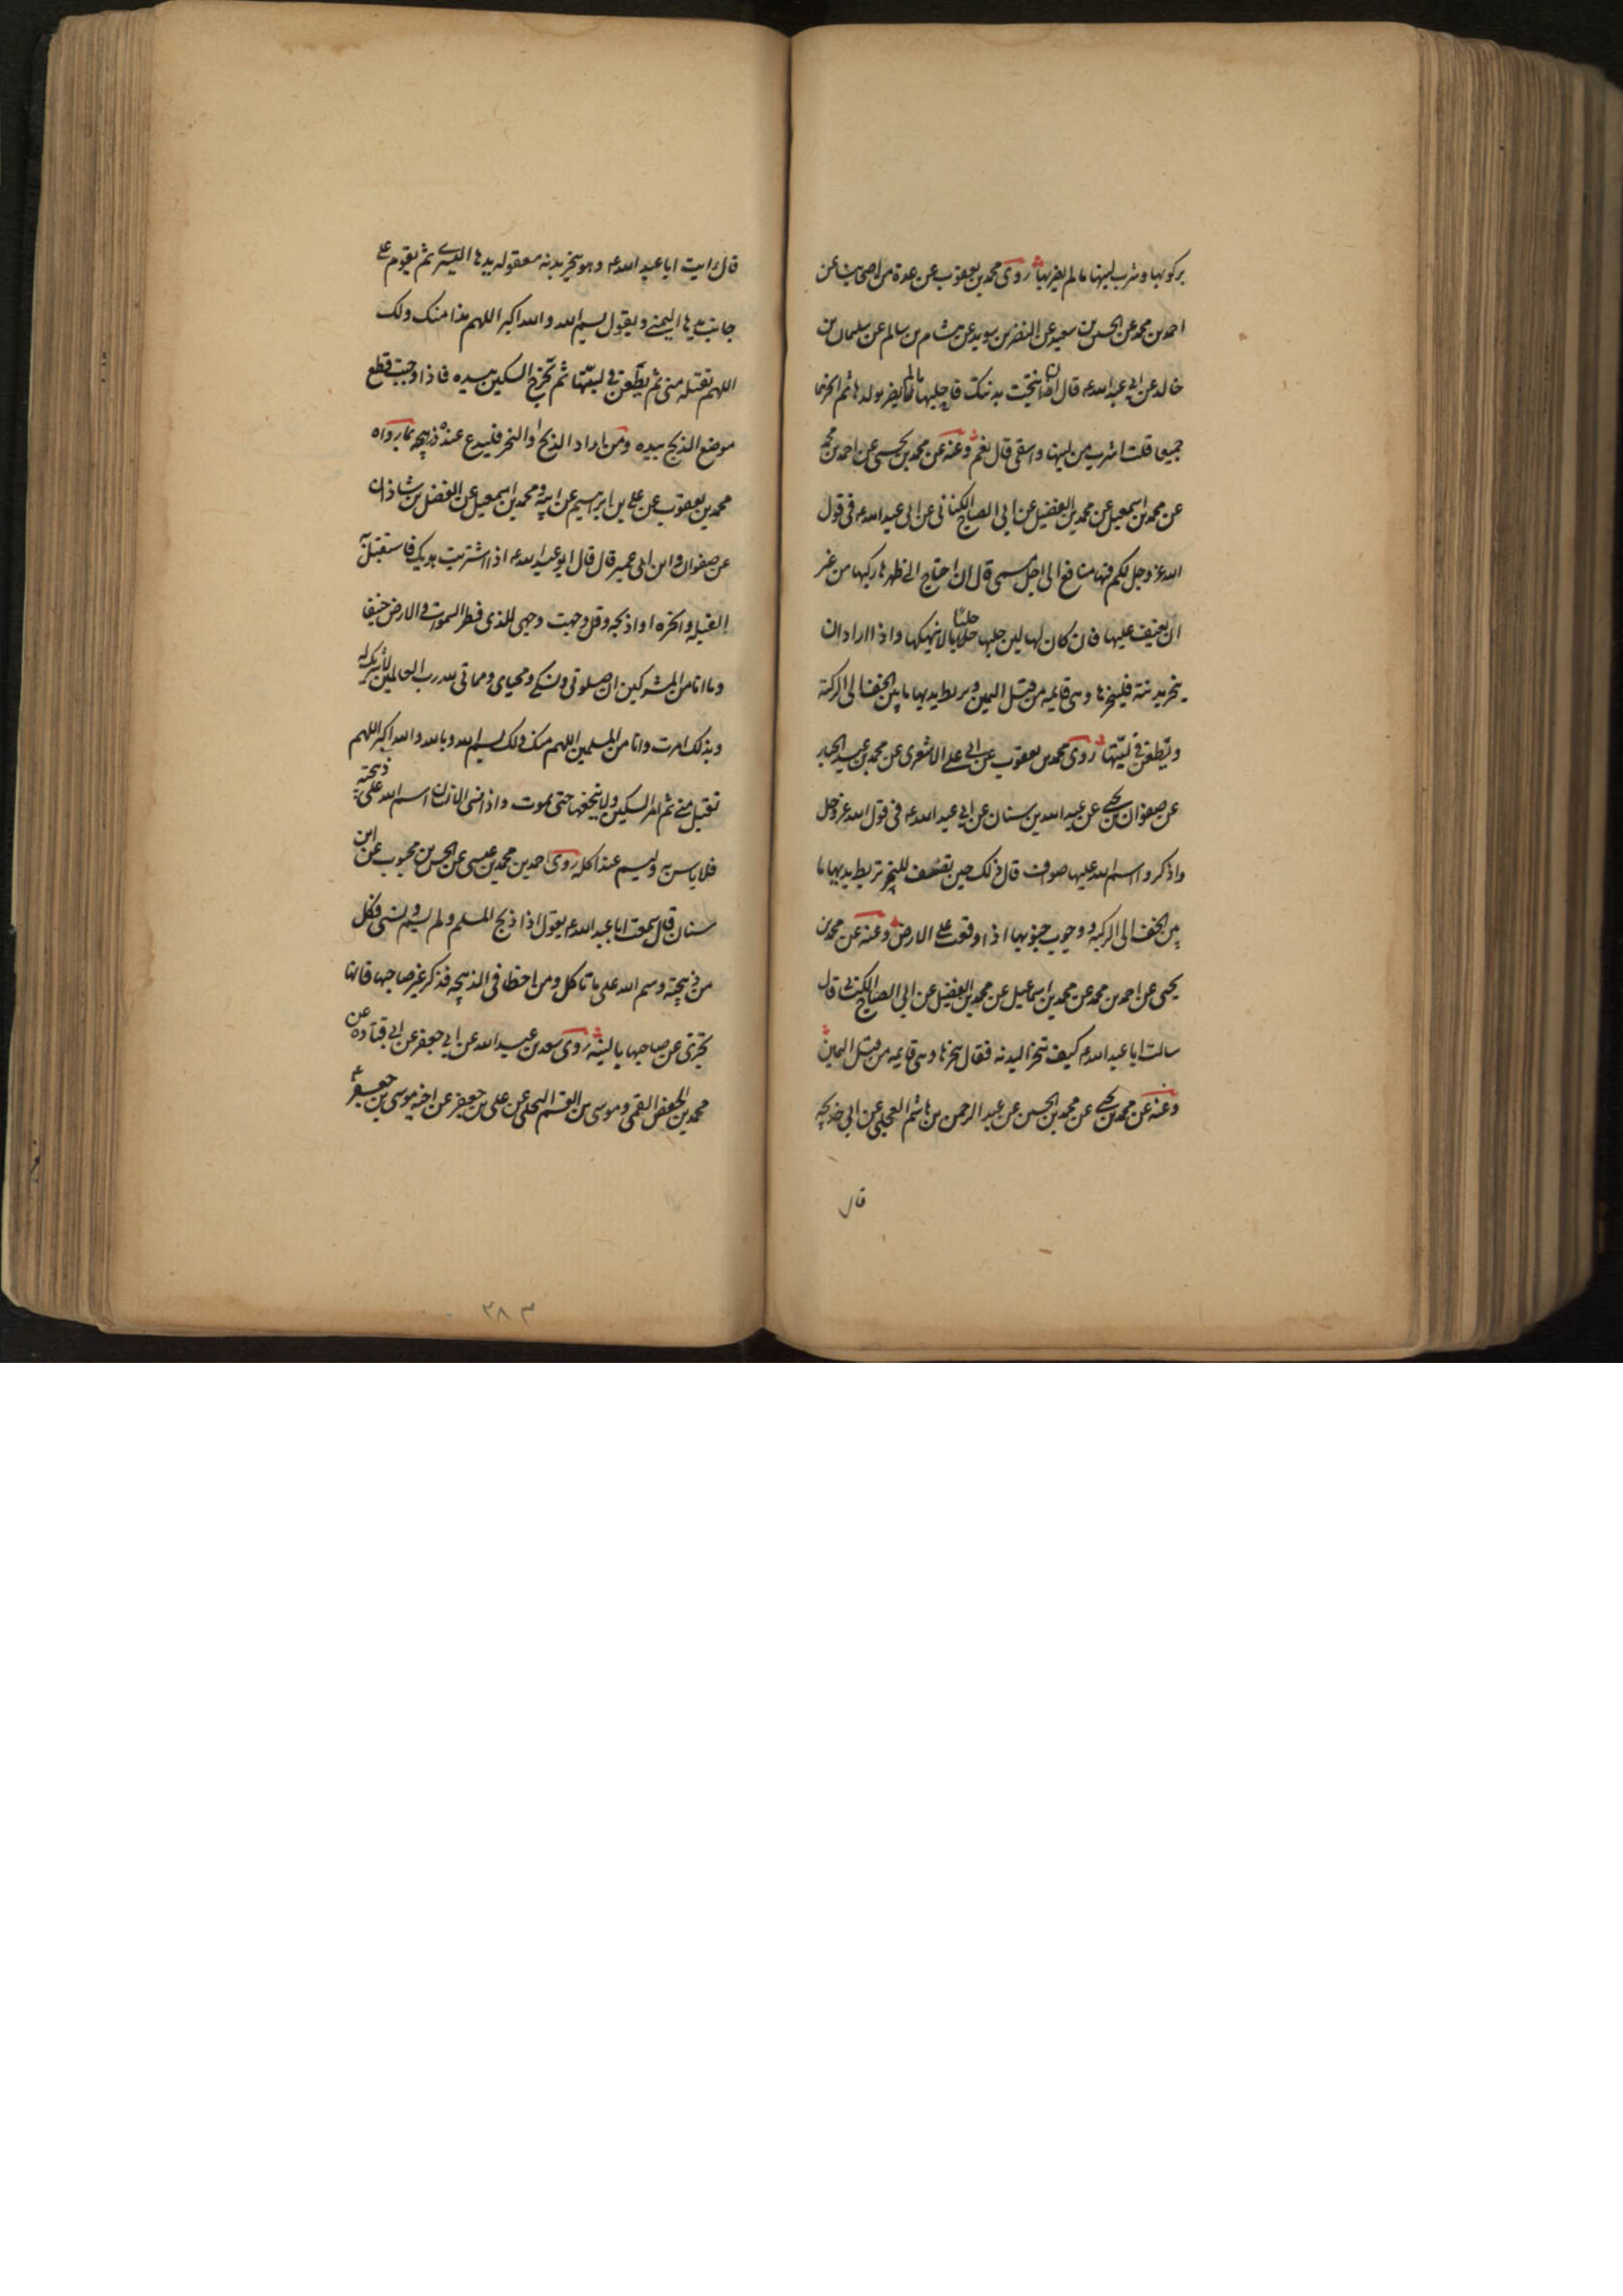 بركوبها وشرب لبنها ما لم يضر بها روى محمد بن يعقوب عن عدة من اصحابنا عن
احمد بن محمد عن الحسين بن سعيد عن النضر بن سويد عن هشام بن سالم عن سليمان بن
خالد عن ابي عبد الله ع قال ان نتجت بدنتك فاحلبها ما لم يضر بولدها ثم انحرهما
جميعا قلت اشرب من لبنها واسقى قال نعم وعنه عن محمد بن يحيى عن احمد بن محمد
عن محمد بن اسمعيل عن محمد بن الفضيل عن ابي الصباح الكناني عن ابي عبد الله ع في قول
الله عز وجل لكم فيها منافع الى اجل مسمى قال ان احتاج الى ظهرها ركبها من غير
ان يعنف عليها فان كان لها لبن حلبها حلابا لا ينهكها واذا اراد ان
ينحر بدنته فلينحرها وهى قايمه من قبل اليمين ويربط يديها ما بين الخف الى الركبة
ويطعن في لبتها روى محمد بن يعقوب عن ابي على الاشعرى عن محمد بن عبد الجبار
عن صفوان بن يحيى عن عبد الله بن سنان عن ابي عبد الله ع في قول الله عز وجل
واذكروا اسم الله عليها صواف قال ذلك حين تصف للنحر تربط يديها ما
بين الخف الى الركبه ووجوب جنوبها اذا وقعت على الارض وعنه عن محمد بن
يحيى عن احمد بن محمد عن محمد بن اسماعيل عن محمد بن الفضيل عن ابي الصباح الكناني قال
سالت ابا عبد الله ع كيف تنحر البدنه فقال تنحرها وهى قايمه من قبل اليمين
وعنه عن محمد بن يحيى عن محمد بن الحسين عن عبد الرحمن بن هاشم البجلي عن ابي خديجه
قال
قال رايت ابا عبد الله ع وهو ينحر بدنه معقوله يدها اليسرى ثم يقوم على
جانب يدها اليمنى ويقول بسم الله والله اكبر اللهم هذا منك ولك
اللهم تقبله منى ثم يطعن في لبتها ثم يخرج السكين بيده فاذا وجبت قطع
موضع الذبح بيده ومن اراد الذبح او النحر فليدع عنده ذبحه بما رواه
محمد بن يعقوب عن على بن ابراهيم عن ابيه ومحمد بن اسمعيل عن الفضل بن شاذان
عن صفوان وابن ابي عمير قال قال ابو عبد الله ع اذا اشتريت هديك فاستقبل به
القبله وانحره او اذبحه وقل وجهت وجهى للذى فطر السموات والارض حنيفا
وما انا من المشركين ان صلوتى ونسكى ومحياى ومماتى لله رب العالمين لا شريك له
وبذلك امرت وانا من المسلمين اللهم منك ولك بسم الله وبالله والله اكبر اللهم
تقبل منى ثم امر السكين ولا ينخعها حتى تموت واذا نسى الانسان اسم الله على ذبيحته
فلا باس به وليسم عند اكله روى احمد بن محمد بن عيسى عن الحسن بن محبوب عن ابن
سنان قال سمعت ابا عبد الله ع يقول اذا ذبح المسلم ولم يسم ونسى فكل
من ذبيحته وسم الله على ما تاكل ومن اخطا في الذبيحه فذكر غير صاحبها فانها
تجزى عن صاحبها بالنية روى سعد بن عبد الله عن ابي جعفر عن ابي قتاده عن
محمد بن حفص القمى وموسى بن القسم البجلى عن على بن جعفر عن اخيه موسى بن جعفر ع
٣٨٣